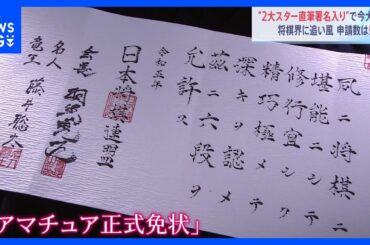 NEWS
DIG
“2大スター直筆署名入り”で今大
将棋界に追い風 申請数は
夙ニ将棋ニ
堪能ニシテ
修行宜シク
精巧極メテ
深キヲ認メ
茲ニ六段ヲ
允許ス
令和五年
日本将棋連盟
会長 羽生善治
名人
竜王 藤井聡太
アマチュア正式免状」